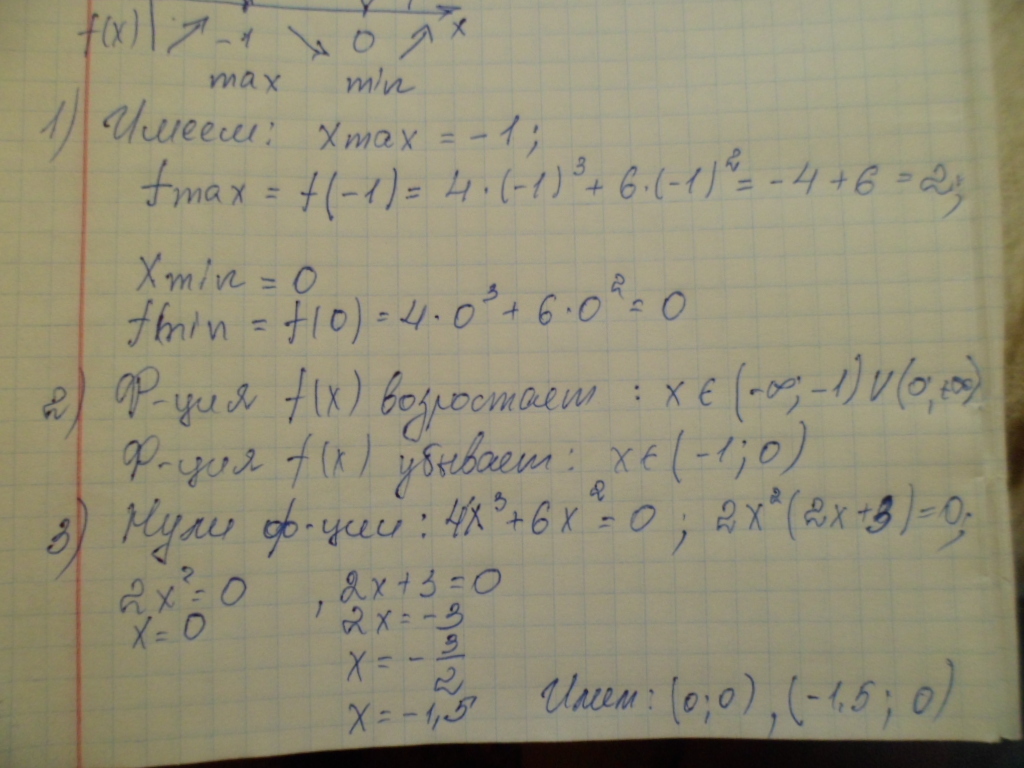 f(x) -1 0 x
max min
1) Имеем: xmax = -1;
fmax = f(-1) = 4·(-1)³ + 6·(-1)² = -4 + 6 = 2;
Xmin = 0
fmin = f(0) = 4·0³ + 6·0² = 0
2) Ф-ция f(x) возростает : x ∈ (-∞; -1) ∪ (0; +∞)
Ф-ция f(x) убывает: x ∈ (-1; 0)
3) Нули ф-ции: 4x³ + 6x² = 0 ; 2x²(2x+3) = 0;
2x² = 0 , 2x + 3 = 0
x = 0 2x = -3
x = -3/2
x = -1,5 Имеем: (0;0) , (-1,5; 0)